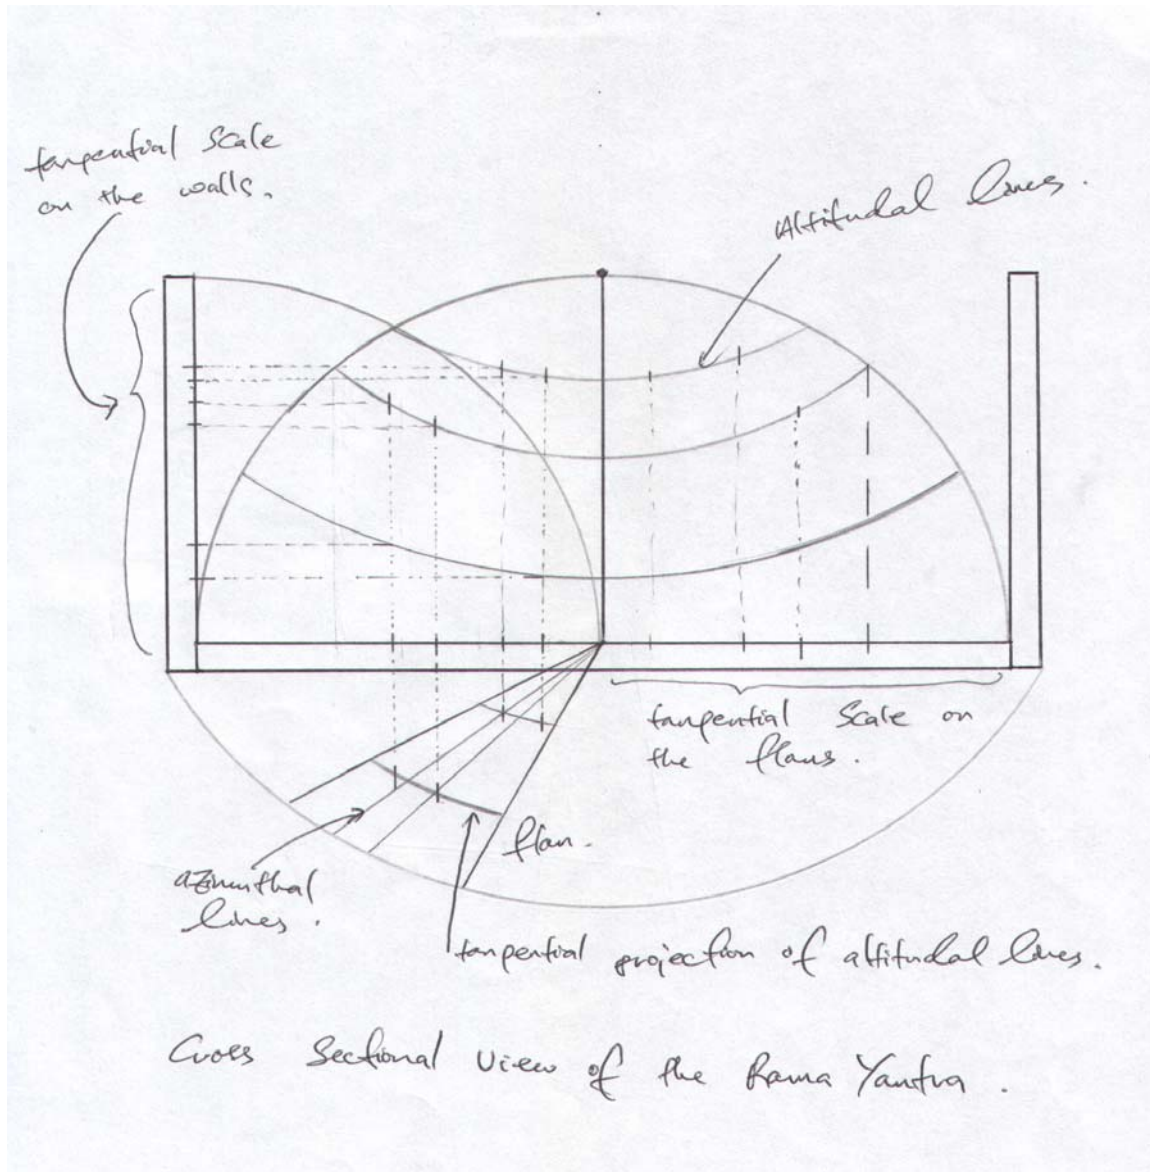 tangential Scale
on the walls.
Altitudal lines.
tangential Scale on
the plans.
plan.
azimuthal
lines.
tangential projection of altitudal lines.
Cross Sectional View of the Rama Yantra.